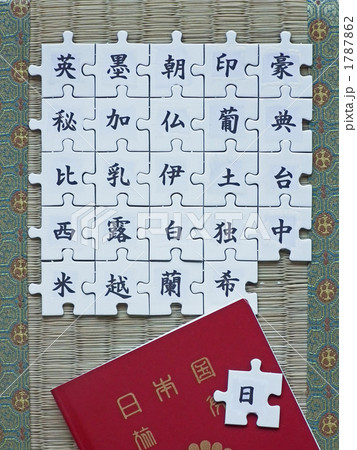 英墨朝印豪
秘加仏葡典
比乳伊土台
西露白独中
米越蘭希
日
日本国
旅
PIXTA
pixta.jp - 1787862